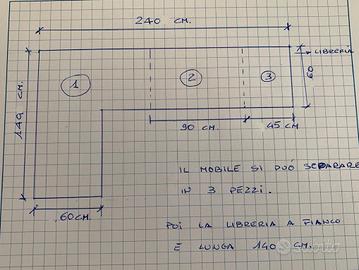 240 CM.
LIBRERIA
1
2
3
60
149 CM.
90 CM.
45 CM
60 CM
IL MOBILE SI PUÒ SEPARARE
IN 3 PEZZI.
POI LA LIBRERIA A FIANCO
È LUNGA 140 CM.
subito